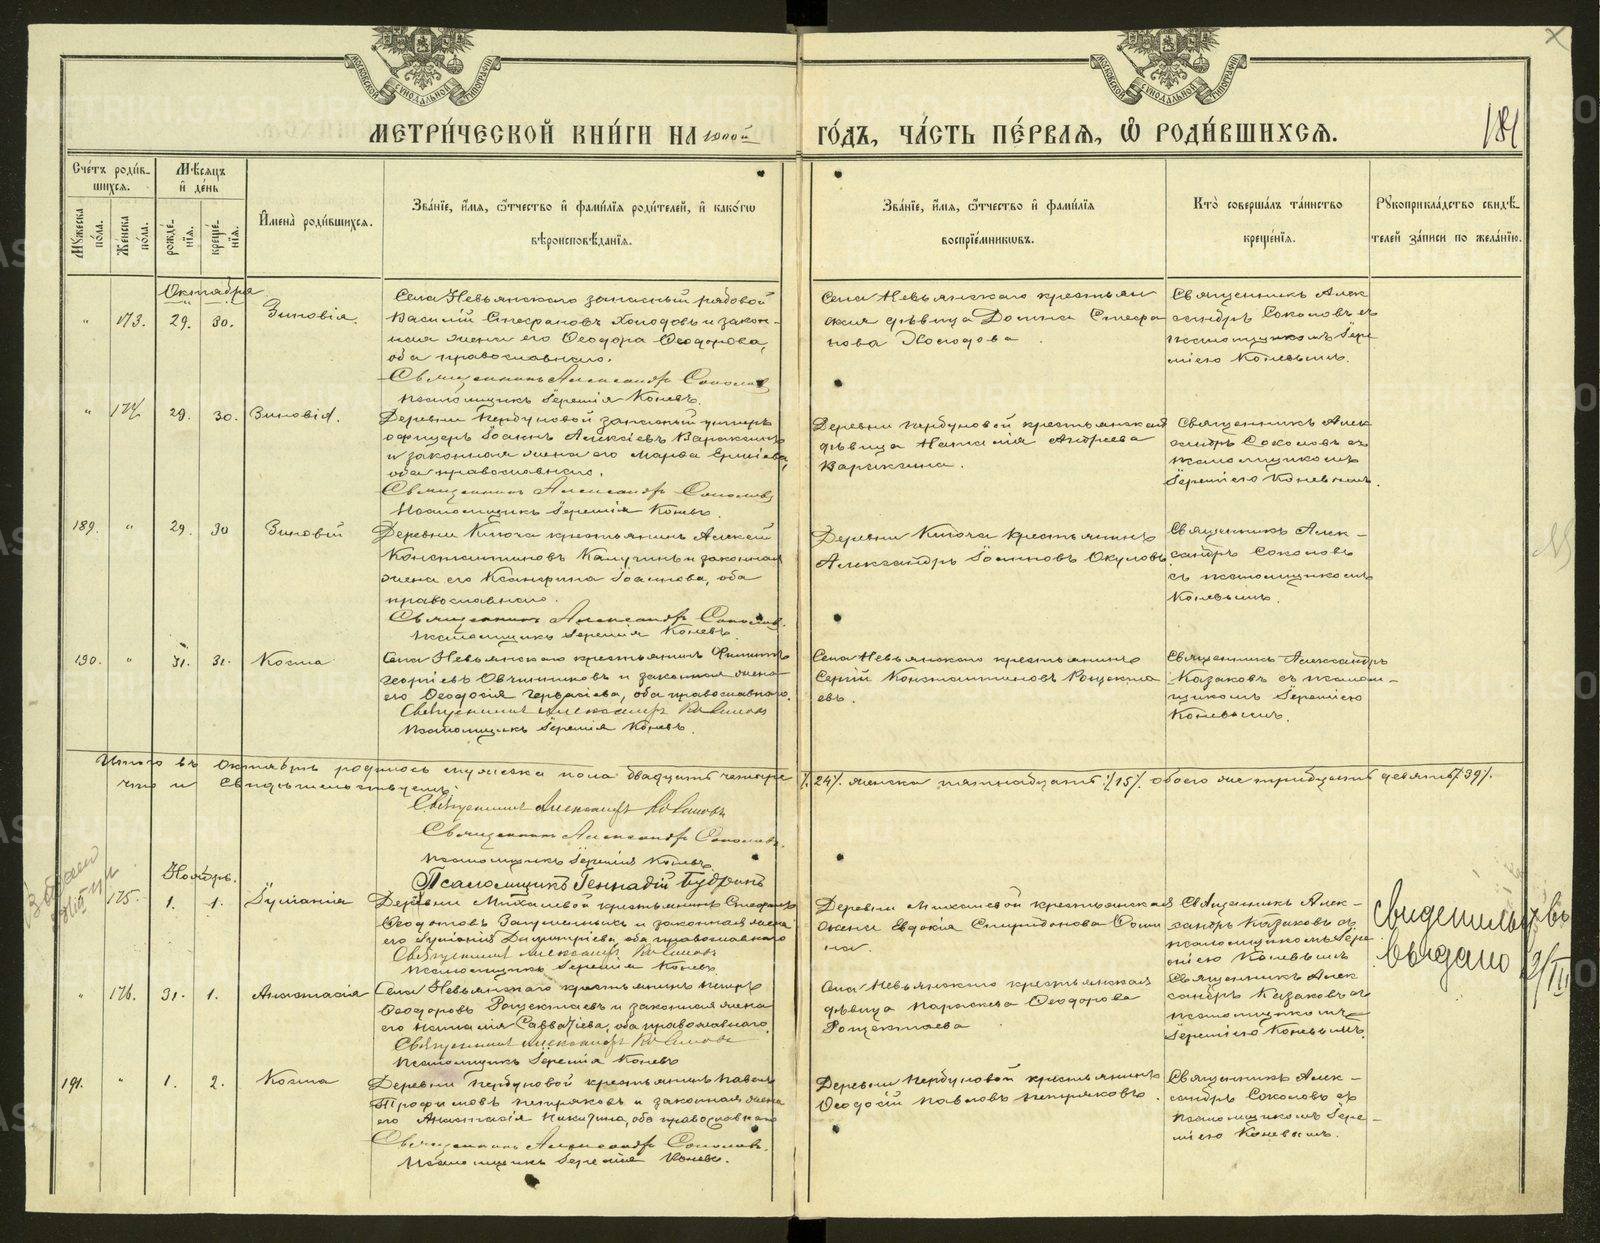 МЕТРИ́ЧЕСКОЙ КНИ́ГИ НА ГО́ДЪ, ЧА́СТЬ ПЕ́РВАЯ, Ѿ РОДИ́ВШИХСЯ.
181
Сче́тъ роди́в-
шихся.
Мѣсяцъ
и де́нь
Му́жеска по́ла.
Же́нска по́ла.
рожде́-
нія.
креще́-
нія.
Имена̀ роди́вшихся.
Зва́ніе, и́мя, о́тчество и фами́лія роди́телей, и како́гω
вѣроисповѣ́данія.
Зва́ніе, и́мя, о́тчество и фами́лія
воспріе́мниковъ.
Кто̀ соверша́лъ та́инство
креще́нія.
Рукоприкла́дство свидѣ́-
телей за́писи по жела́нію.
Октября
" 173. 29. 30. Зиновія.
Села Невьянскаго запасный рядовой
Василій Стефановъ Холодовъ и закон-
ная жена его Ѳеодора Ѳеодорова,
оба православнаго.
Священникъ Александръ Соколовъ
Псаломщикъ Іеремія Коневъ.
Села Невьянскаго крестьян
ская дѣвица Домна Стефа
нова Холодова
Священникъ Алек
сандръ Соколовъ съ
псаломщикомъ Іере
міею Коневымъ.
" 174 29. 30. Зиновія.
Деревни запасный унтеръ
офицеръ Іоаннъ Алексіевъ Варакинъ
и законная жена его Марѳа
оба православнаго.
Священникъ Александръ Соколовъ
Псаломщикъ Іеремія Коневъ.
Деревни крестьянская
дѣвица Наталія Андреева
Варакина.
Священникъ Алек
сандръ Соколовъ съ
псаломщикомъ
Іереміею Коневымъ.
189. " 29. 30 Зиновій
Деревни Ключа крестьянинъ Алексій
Константиновъ и законная
жена его Іоаннова, оба
православнаго.
Священникъ Александръ Соколовъ.
Псаломщикъ Іеремія Коневъ.
Деревни Ключа крестьянинъ
Александръ Іоанновъ Окуловъ
Священникъ Алек-
сандръ Соколовъ
съ псаломщикомъ
Коневымъ.
190. " 31. 31. Косма
Села Невьянскаго крестьянинъ Филиппъ
Георгіевъ Овчинниковъ и законная жена
его Ѳеодосія Гервасіева, оба православнаго.
Священникъ Александръ Казаковъ
Псаломщикъ Іеремія Коневъ.
Села Невьянскаго крестьянинъ
Сергій Константиновъ
евъ.
Священникъ Александръ
Казаковъ съ псалом-
щикомъ Іереміею
Коневымъ.
Итого въ Октябрѣ родилось мужеска пола двадцать четыре /24/. женска пятнадцать /15/. обоего же тридцать девять /39/.
что и свидѣтельствуемъ:
Священникъ Александръ Казаковъ
Священникъ Александръ Соколовъ.
Псаломщикъ Іеремія Коневъ
Псаломщикъ Геннадій Будринъ
Ноябрь.
175. 1. 1. Іуліанія
Деревни Михалевой крестьянинъ Стефанъ
Ѳеодотовъ и законная жена
его Іуліанія Димитріева, оба православнаго
Священникъ Александръ Казаковъ
Псаломщикъ Іеремія Коневъ.
Деревни Михалевой крестьянская
жена Евдокія Спиридонова
Священникъ Алек-
сандръ Казаковъ съ
псаломщикомъ Іере
міею Коневымъ
свидетельство
выдано 2/III
" 176. 31. 1. Анастасія
Села Невьянскаго крестьянинъ Петръ
Ѳеодоровъ и законная жена
его Наталія Савватіева, оба православнаго.
Священникъ Александръ Казаковъ
Псаломщикъ Іеремія Коневъ
Села Невьянскаго крестьянская
дѣвица Параскева Ѳеодорова
Священникъ Алек
сандръ Казаковъ съ
псаломщикомъ
Іереміею Коневымъ.
191. " 1. 2. Косма
Деревни крестьянинъ Павелъ
Трофимовъ Петряковъ и законная жена
его Анастасія Никитина, оба православнаго
Священникъ Александръ Соколовъ.
Псаломщикъ Іеремія Коневъ.
Деревни крестьянинъ
Ѳеодосій Павловъ Петряковъ.
Священникъ Алек-
сандръ Соколовъ съ
псаломщикомъ Іере-
міею Коневымъ.